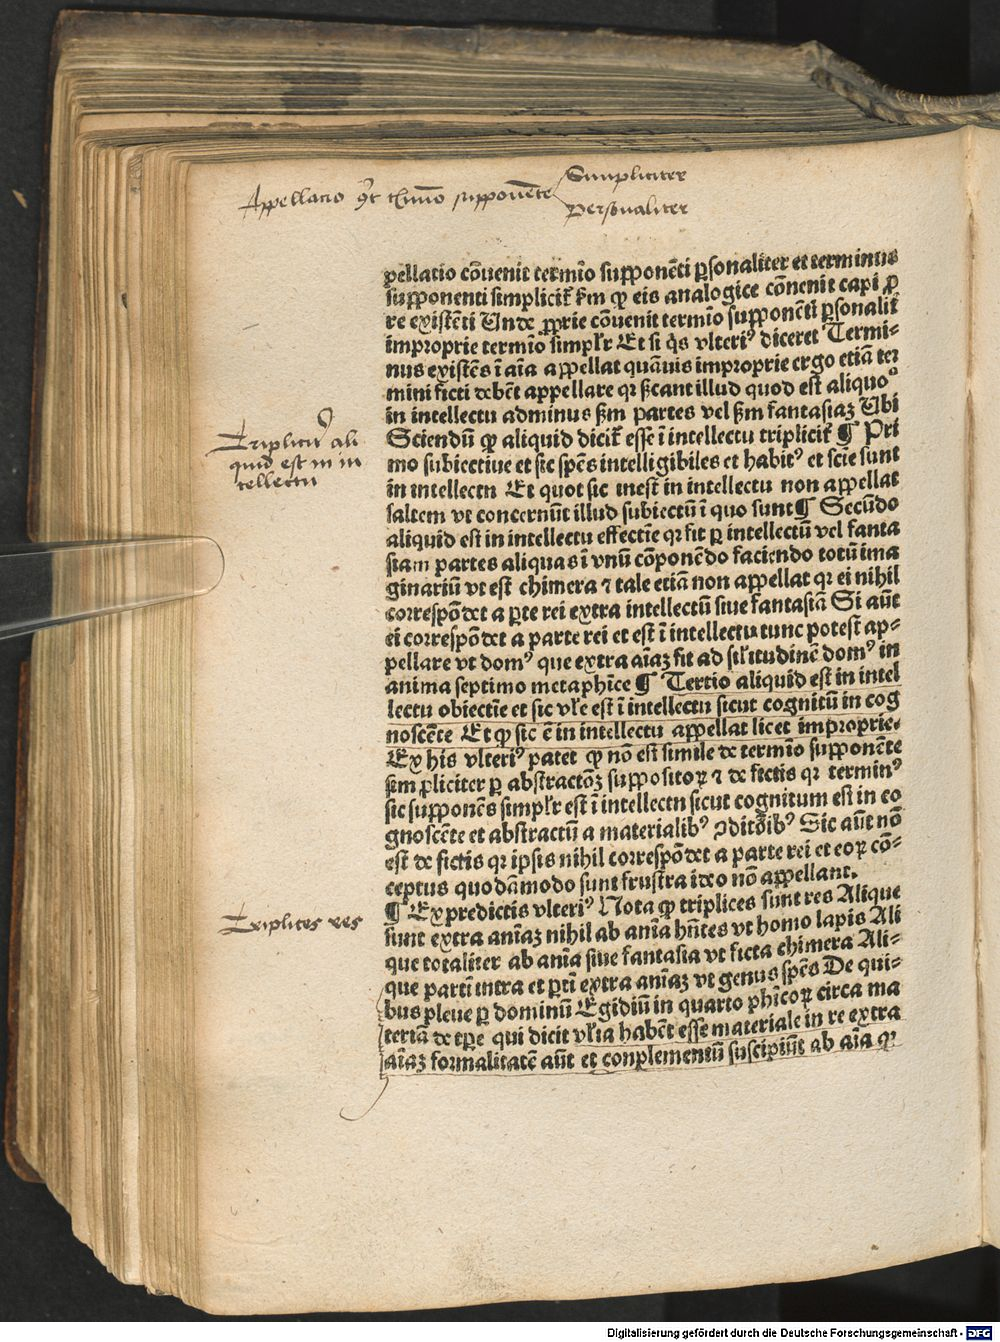 Appellacio ꝯ̄t t̄mīo supponēte
Simpliciter
Personaliter
pellatio cōuenit termīo supponēti ꝑsonaliter et terminus
supponenti simplicit̄ ẜm ꝙ eis analogice cōnenit capi ꝓ
re existēti Unde ꝓprie cōuenit termīo supponēti ꝑsonalit̄
improprie termīo simpl̄r Et si q̄s vlteriꝰ diceret Termi⸗
nus existēs ī aīa appellat quāuis improprie ergo etiā ter
mini ficti debēt appellare qꝛ ẜcant illud quod est aliquo
in intellectu adminus ẜm partes vel ẜm fantasiaꝫ Ubi
Sciendū ꝙ aliquid dicit̄ esse ī intellectu triplicit̄ ¶ Pri
mo subiectiue et sic spēs intelligibiles et habitꝰ et scīe sunt
in intellectu Et quot sic inest in intellectu non appellat
saltem vt concernūt illud subiectū ī quo sunt ¶ Secūdo
aliquid est in intellectu effectīe qꝛ fit ꝑ intellectū vel fanta
siam partes aliquas ī vnū cōponēdo faciendo totū ima
ginariū vt est chimera ⁊ tale etiā non appellat qꝛ ei nihil
correspōdet a ꝑte rei extra intellectū siue fantasiā Si aūt
ei correspōdet a parte rei et est ī intellectu tunc potest ap⸗
pellare vt domꝰ que extra aīaꝫ fit ad sil̄itudinē domꝰ in
anima septimo metaphīce ¶ Tertio aliquid est in intel
lectu obiectīe et sic vl̄e est ī intellectu sicut cognitū in cog
noscēte Et ꝙ sic ē in intellectu appellat licet improprie.
Ex his vlteriꝰ patet ꝙ nō est simile de termīo supponēte
simpliciter ꝑ abstractōꝫ suppositoꝝ ⁊ de fictis qꝛ terminꝰ
sic supponēs simpl̄r est ī intellectu sicut cognitum est in co
gnoscēte et abstractū a materialibꝰ ꝯditōibꝰ Sic aūt nō
est de fictis qꝛ ipsis nihil correspōdet a parte rei et eoꝝ cō⸗
ceptus quodāmodo sunt frustra ideo nō appellant.
¶ Ex predictis vlteriꝰ Nota ꝙ triplices sunt res Alique
sunt extra anīaꝫ nihil ab anīa hn̄tes vt homo lapis Ali
que totaliter ab anīa siue fantasia vt ficta chimera Ali⸗
que partī intra et ꝑtī extra anīaꝫ vt genus spēs De qui⸗
bus plene ꝑ dominū Egidiū in quarto phīcoꝝ circa ma
teriā de tꝑe qui dicit vl̄ia habēt esse materiale in re extra
aīaꝫ formalitatē aūt et conplementū suscipiūt ab aīa qꝛ
Tripliciter ali
quid est in in
tellectu
Triplices res
Digitalisierung gefördert durch die Deutsche Forschungsgemeinschaft - DFG